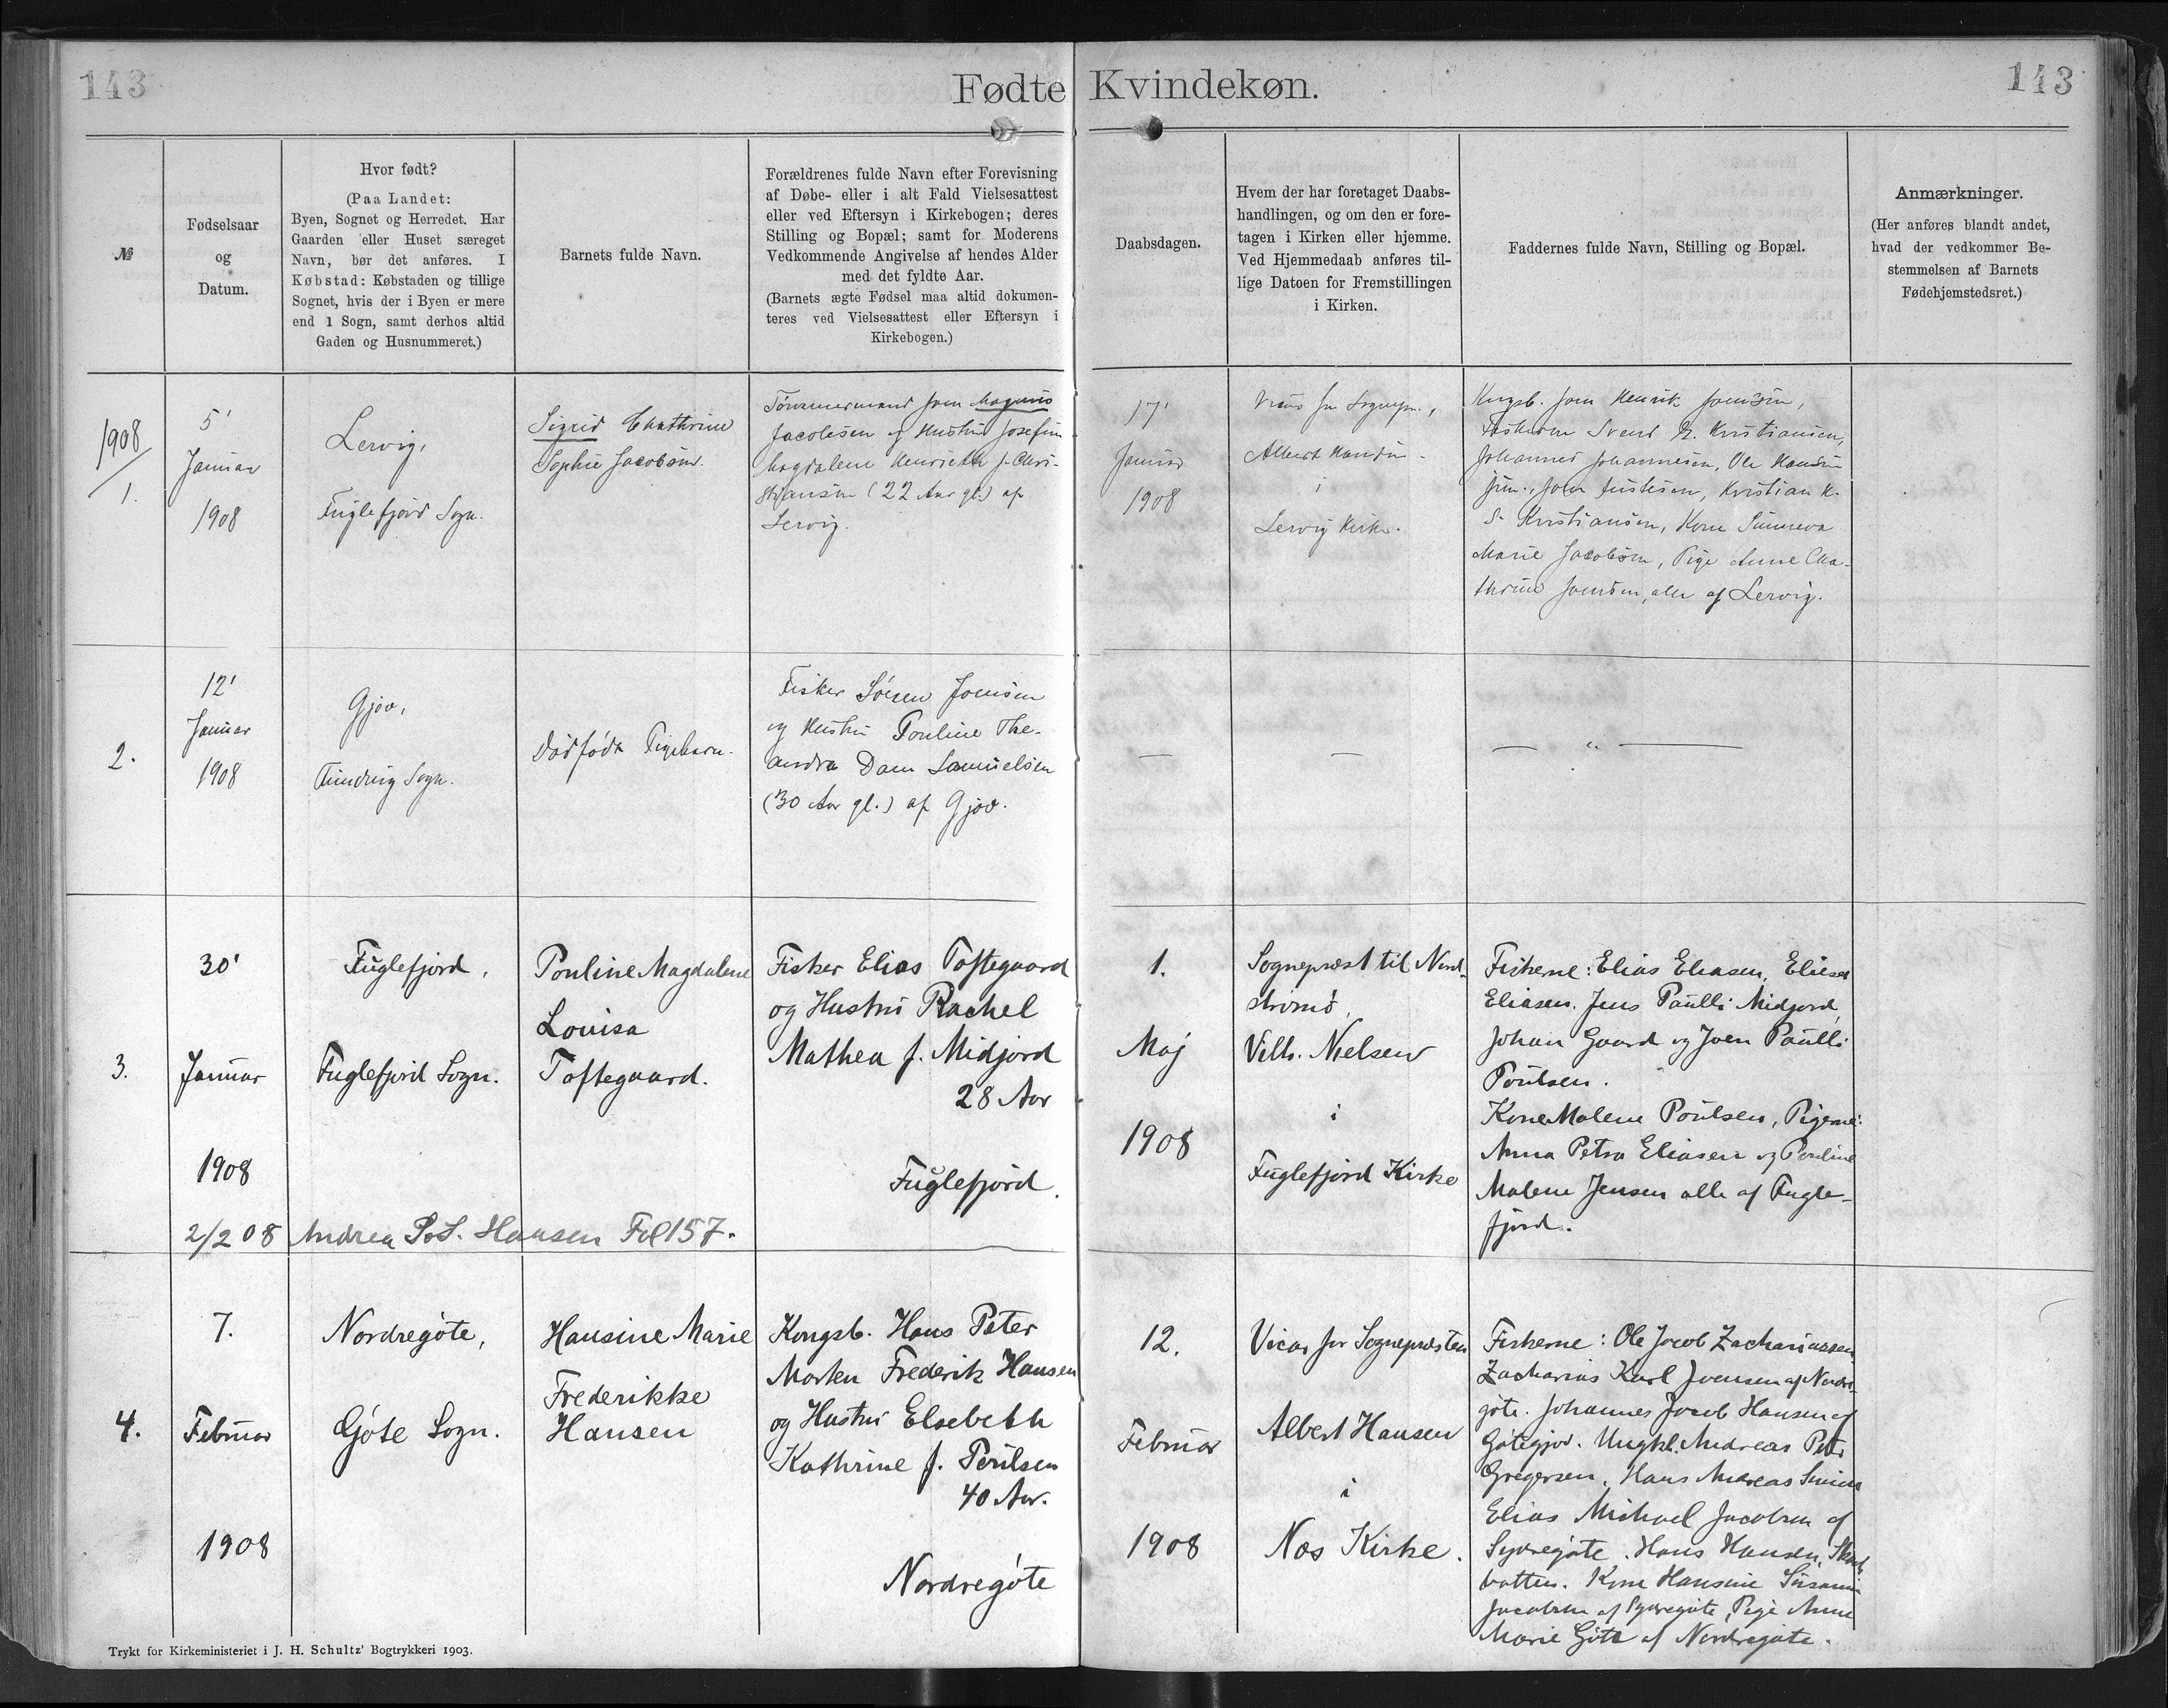 143
Fødte Kvindekøn.
143
№
Fødselsaar
og
Datum.
Hvor født?
(Paa Landet:
Byen, Sognet og Herredet. Har
Gaarden eller Huset særeget
Navn, bør det anføres. I
Købstad: Købstaden og tillige
Sognet, hvis der i Byen er mere
end 1 Sogn, samt derhos altid
Gaden og Husnummeret.)
Barnets fulde Navn.
Forældrenes fulde Navn efter Forevisning
af Døbe- eller i alt Fald Vielsesattest
eller ved Eftersyn i Kirkebogen; deres
Stilling og Bopæl; samt for Moderens
Vedkommende Angivelse af hendes Alder
med det fyldte Aar.
(Barnets ægte Fødsel maa altid dokumen-
teres ved Vielsesattest eller Eftersyn i
Kirkebogen.)
Daabsdagen.
Hvem der har foretaget Daabs-
handlingen, og om den er fore-
tagen i Kirken eller hjemme.
Ved Hjemmedaab anføres til-
lige Datoen for Fremstillingen
i Kirken.
Faddernes fulde Navn, Stilling og Bopæl.
Anmærkninger.
(Her anføres blandt andet,
hvad der vedkommer Be-
stemmelsen af Barnets
Fødehjemstedsret.)
1908
1.
5'
Januar
1908
Lervig,
Fuglefjord Sogn.
Sigrid Chathrine
Sophie Jacobsen.
Tømmermand Joen Magnus
Jacobsen og Hustru Josefine
Magdalene Henriette f. Chri-
stjansen (22 Aar gl.) af
Lervig.
17'
Januar
1908
Vicar for Sognepr.,
Albert Hansen
i
Lervig Kirke.
Kngsb. Joen Henrik Joensen,
Fiskerne Svend H. Kristiansen,
Johannes Johannesen, Ole Hansen
jun., Joen Justesen, Kristian K.
S. Kristiansen, Kone Sunneva
Marie Jacobsen, Pige Anne Cha-
thrine Joensen, alle af Lervig.
2.
12'
Januar
1908
Gjov,
Funding Sogn.
Dødfødt Pigebarn.
Fisker Sören Joensen
og Hustru Pouline The-
andra Dam Samuelsen
(30 Aar gl.) af Gjov.
—
—
— " —
3.
30'
Januar
1908
Fuglefjord,
Fuglefjord Sogn.
Pouline Magdalene
Louisa
Toftegaard.
Fisker Elias Toftegaard
og Hustru Rachel
Mathea f. Midjord
28 Aar
Fuglefjord.
1.
Maj
1908
Sognepræst til Nord-
strømø,
Vilh. Nielsen
i
Fuglefjord Kirke
Fiskerne: Elias Eliasen, Elieser
Eliasen. Jens Paulli Midjord,
Johan Gaard og Joen Paulli
Poulsen.
Kone Malene Poulsen, Pigerne:
Anna Petra Eliasen og Pouline
Malene Jensen alle af Fugle-
fjord.
2/2 08 Andrea P. S. Hansen Fol 157.
4.
7.
Februar
1908
Nordregøte,
Gøte Sogn.
Hansine Marie
Frederikke
Hansen
Kongsb. Hans Peter
Morten Frederik Hansen
og Hustru Elsebeth
Kathrine f. Poulsen
40 Aar.
Nordregøte
12.
Februar
1908
Vicar for Sognepræsten
Albert Hansen
i
Nes Kirke.
Fiskerne: Ole Jacob Zachariassen,
Zacharias Karl Joensen af Nordre-
gøte. Johannes Jacob Hansen af
Gøtegjov. Ungkl. Andreas Peter
Gregersen, Hans Andreas
Elias Michael Jacobsen af
Sydregøte. Hans Hansen,
Kone Hansine Susanne
Jacobsen af Sydregøte, Pige Anne
Marie Gøte af Nordregøte.
Trykt for Kirkeministeriet i J. H. Schultz' Bogtrykkeri 1903.